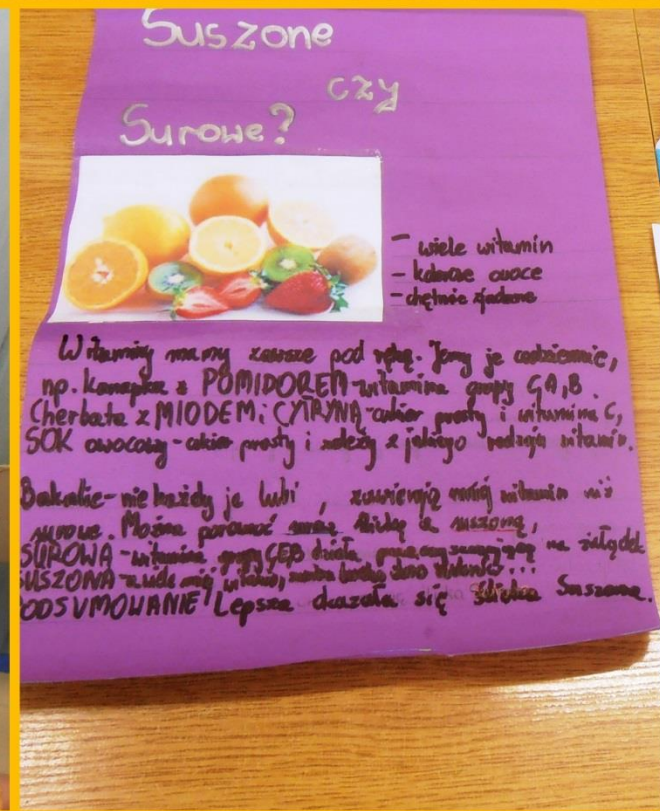 Suszone
czy
Surowe?
- wiele witamin
- kolorowe owoce
- chętnie zjadane
Witaminy mamy zawsze pod ręką. Jemy je codziennie,
np. kanapka z POMIDOREM-witamina grupy C,A,B.
Cherbata z MIODEM i CYTRYNĄ-cukier prosty i witamina C,
SOK owocowy-cukier prosty i zależy z jakiego rodzaju witamin.
Bakalie-nie każdy je lubi, zawierają mniej witamin niż
surowe. Można porównać śliwkę a suszoną,
SUROWA-witamina grupy C,E,B działa na żołądek
SUSZONA-
PODSUMOWANIE Lepsza okazała się śliwka Suszona.